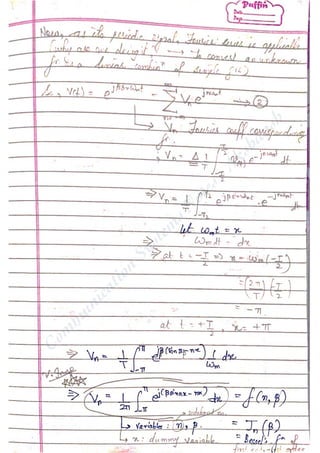 Puffin
Date
Page
Now, as its periodic signal, Fourier series is applicable
(why are we doing it? → to convert an unknown
fn. as a linear combinⁿ of simple fⁿs)
So, v(t) = e^{jβ sin ωₘt} = Σ Vₙ e^{jnωₘt} → ②
↳ Vₙ Fourier coeff corresponding
fr.
→ Vₙ = 1/T ∫_{-T/2}^{T/2} v(t) e^{-jnωₘt} dt
⇒ Vₙ = 1/T ∫_{-T/2}^{T/2} e^{jβ sin ωₘt} . e^{-jnωₘt} dt
let ωₘt = x
⇒ ωₘdt = dx
⇒ at t = -T/2 ⇒ x = ωₘ(-T/2)
= (2π/T)(-T/2)
= -π
at t = +T/2, x = +π
⇒ Vₙ = 1/T ∫_{-π}^{π} e^{j(β sin x - nx)} 1/ωₘ dx
V. Imp
⇒ Vₙ = 1/2π ∫_{-π}^{π} e^{j(β sin x - nx)} dx = f(n, β)
↳ variables : n, β = Jₙ(β)
↳ x : dummy variable = Bessel's fⁿ of